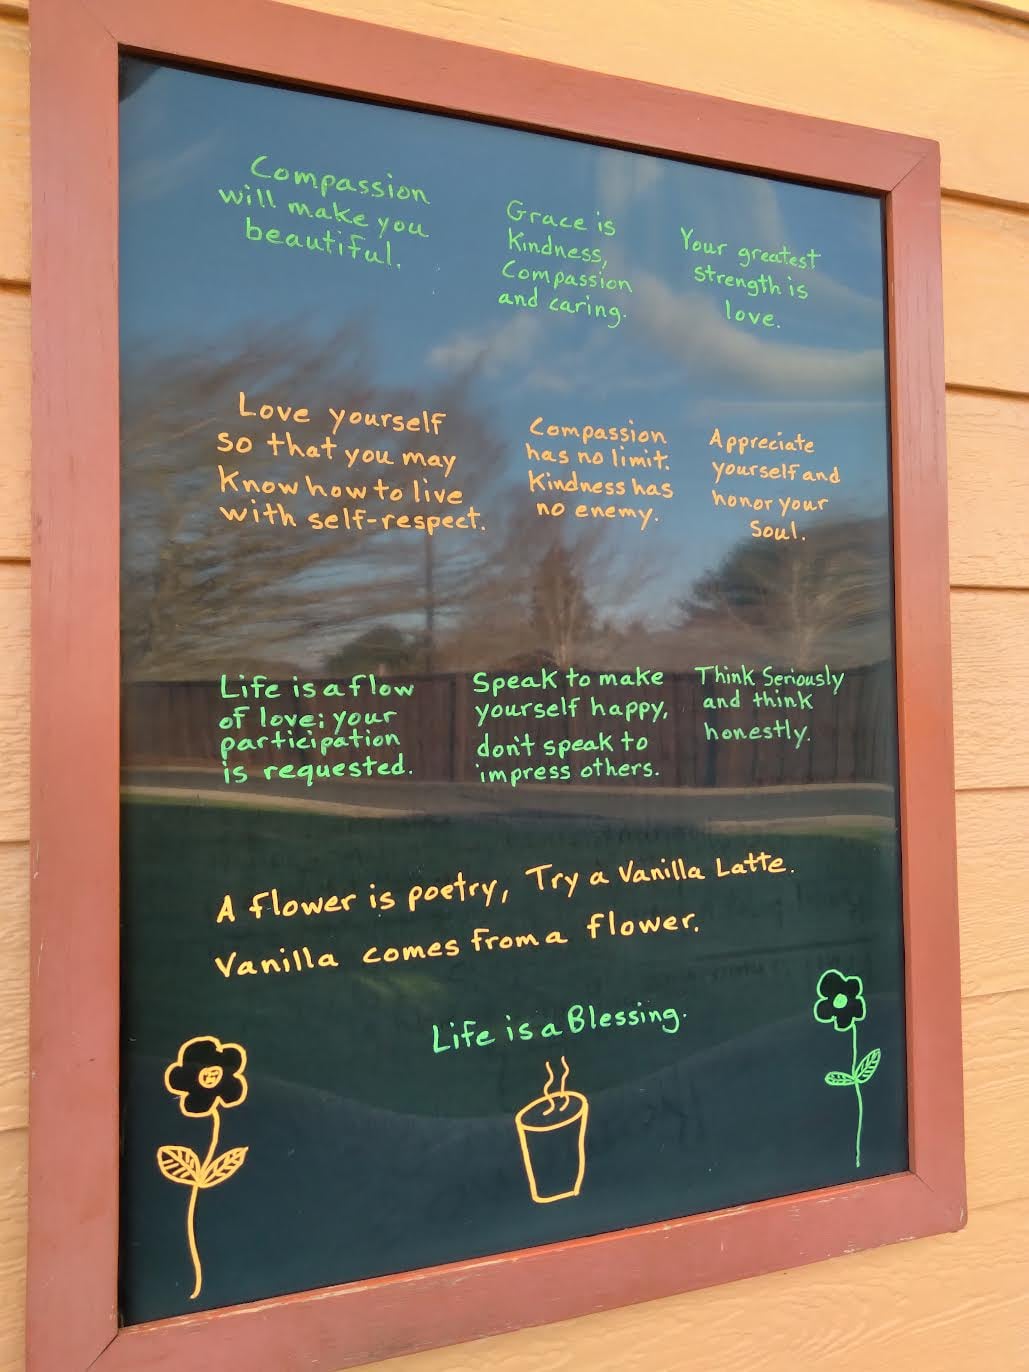 Compassion
will make you
beautiful.
Grace is
Kindness,
Compassion
and caring.
Your greatest
strength is
love.
Love yourself
so that you may
Know how to live
with self-respect.
Compassion
has no limit.
Kindness has
no enemy.
Appreciate
yourself and
honor your
Soul.
Life is a flow
of love; your
participation
is requested.
Speak to make
yourself happy,
don't speak to
impress others.
Think Seriously
and think
honestly.
A flower is poetry, Try a Vanilla Latte.
Vanilla comes from a flower.
Life is a Blessing.